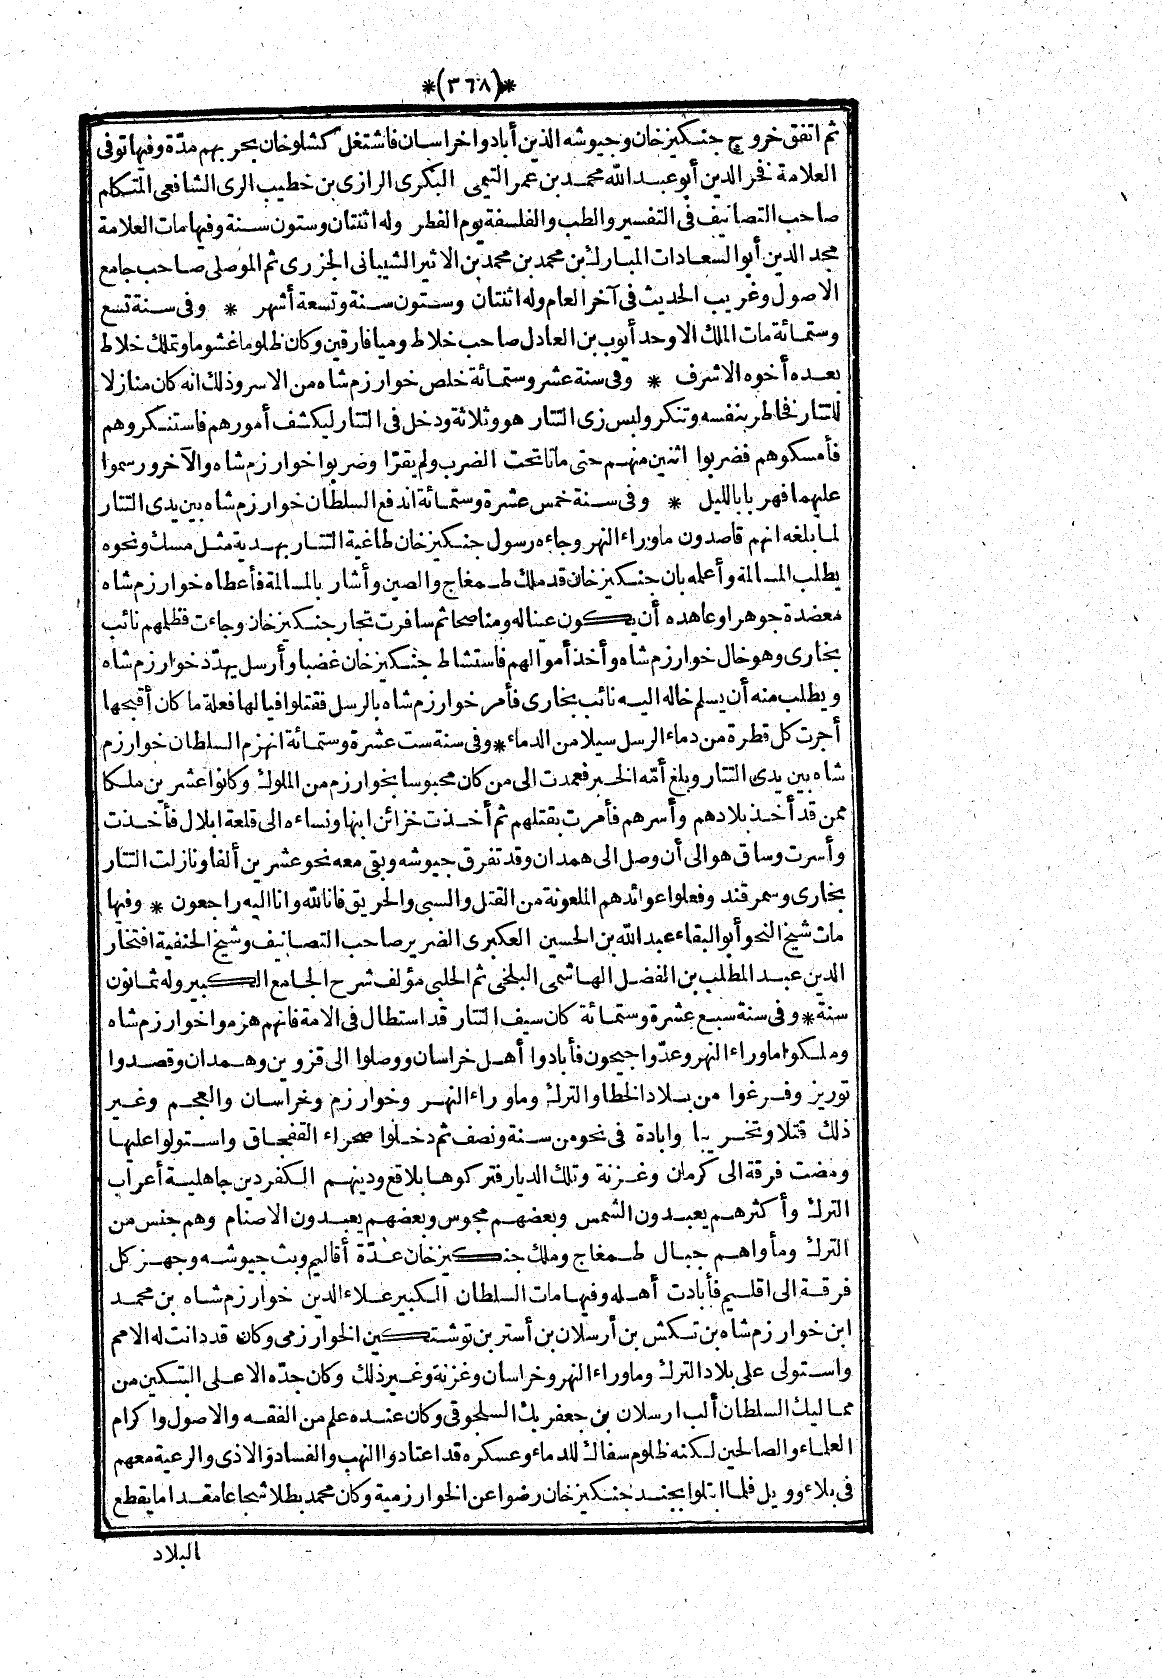 *(٣٦٨)*
ثم اتفق خروج جنكيزخان وجيوشه الذين أبادوا خراسان فاشتغل كشلوخان بحربهم مدّة وفيها توفى
العلامة فخر الدين أبو عبد الله محمد بن عمر التيمى البكرى الرازى بن خطيب الرى الشافعى المتكلم
صاحب التصانيف فى التفسير والطب والفلسفة يوم الفطر وله اثنتان وستون سنة وفيها مات العلامة
مجد الدين أبو السعادات المبارك بن محمد بن محمد بن الاثير الشيبانى الجزرى ثم الموصلى صاحب جامع
الاصول وغريب الحديث فى آخر العام وله اثنتان وستون سنة وتسعة أشهر * وفى سنة تسع
وستمائة مات الملك الاوحد أيوب بن العادل صاحب خلاط وميافارقين وكان ظلوما غشوما وتملك خلاط
بعده أخوه الاشرف * وفى سنة عشر وستمائة خلص خوارزم شاه من الاسر وذلك انه كان منازلا
للتتار فخاطر بنفسه وتنكر ولبس زى التتار هو وثلاثة ودخل فى التتار ليكشف أمورهم فاستنكروهم
فأمسكوهم فضربوا اثنين منهم حتى ماتا تحت الضرب ولم يقرّا وضربوا خوارزم شاه والآخر ورسموا
عليهما فهربا بالليل * وفى سنة خمس عشرة وستمائة اندفع السلطان خوارزم شاه بين يدى التتار
لما بلغه انهم قاصدون ماوراء النهر وجاءه رسول جنكيزخان طاغية التتار بهدية مثل مسك ونحوه
يطلب المسالمة وأعلمه بان جنكيزخان قد ملك طمغاج والصين وأشار بالمسالمة فأعطاه خوارزم شاه
معضدة جوهرا وعاهده أن يكون عيناله ومناصحا ثم سافرت تجار جنكيزخان وجاءت فظلهم نائب
بخارى وهو خال خوارزم شاه وأخذ أموالهم فاستشاط جنكيزخان غضبا وأرسل يهدّد خوارزم شاه
ويطلب منه أن يسلم خاله اليه نائب بخارى فأمر خوارزم شاه بالرسل فقتلوا فيالها فعلة ما كان أقبحها
أجرت كل قطرة من دماء الرسل سيلا من الدماء * وفى سنة ست عشرة وستمائة انهزم السلطان خوارزم
شاه بين يدى التتار وبلغ أمّه الخبر فعمدت الى من كان محبوسا بخوارزم من الملوك وكانوا عشرين ملكا
ممن قد أخذ بلادهم وأسرهم فأمرت بقتلهم ثم أخذت خزائن ابنها ونساءه الى قلعة ايلال فأخذت
وأسرت وساق هو الى أن وصل الى همدان وقد تفرق جيوشه وبقى معه نحو عشرين ألفا ونازلت التتار
بخارى وسمرقند وفعلوا عوائدهم الملعونة من القتل والسبى والحريق فانا لله وانا اليه راجعون * وفيها
مات شيخ النحو أبو البقاء عبد الله بن الحسين العكبرى الضرير صاحب التصانيف وشيخ الحنفية افتخار
الدين عبد المطلب بن الفضل الهاشمى البلخى ثم الحلبى مؤلف شرح الجامع الكبير وله ثمانون
سنة * وفى سنة سبع عشرة وستمائة كان سيف التتار قد استطال فى الامة فانهم هزموا خوارزم شاه
وملكوا ماوراء النهر وعدّوا جيحون فأبادوا أهل خراسان ووصلوا الى قزوين وهمدان وقصدوا
توريز وفرغوا من بلاد الخطا والترك وماوراء النهر وخوارزم وخراسان والعجم وغير
ذلك قتلا وتخريبا وابادة فى نحو من سنة ونصف ثم دخلوا صحراء القفجاق واستولوا عليها
ومضت فرقة الى كرمان وغزنة وتلك الديار فتركوها بلاقع ودينهم الكفر دين جاهلية أعراب
الترك وأكثرهم يعبدون الشمس وبعضهم مجوس وبعضهم يعبدون الاصنام وهم جنس من
الترك ومأواهم جبال طمغاج وملك جنكيزخان عدّة أقاليم وبث جيوشه وجهز كل
فرقة الى اقليم فأبادت أهله وفيها مات السلطان الكبير علاء الدين خوارزم شاه بن محمد
ابن خوارزم شاه بن تكش بن أرسلان بن أستر بن توشتكين الخوارزمى وكان قد دانت له الامم
واستولى على بلاد الترك وماوراء النهر وخراسان وغزنة وغير ذلك وكان جدّه الاعلى البتكين من
مماليك السلطان ألب ارسلان بن جعفر بك السلجوقى وكان عنده علم من الفقه والاصول واكرام
العلماء والصالحين لكنه ظلوم سفاك للدماء وعسكره قد اعتادوا النهب والفساد والاذى والرعية معهم
فى بلاء وويل فلما ابتلوا بجند جنكيزخان رضوا عن الخوارزمية وكان محمد بطلا شجاعا مقداما يقطع
البلاد